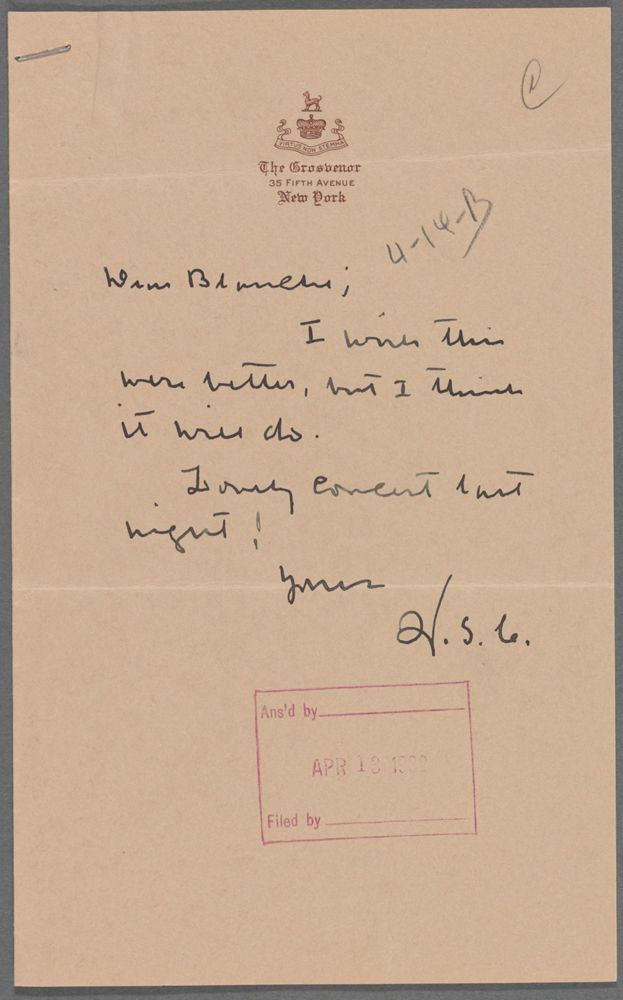 VIRTUS NON STEMMA
The Grosvenor
35 FIFTH AVENUE
New York
4-14-B
Dear Blanche;
I wish this
were better, but I think
it will do.
Lovely concert last
night!
Yours
H.S.C.
Ans'd by
APR 13
Filed by